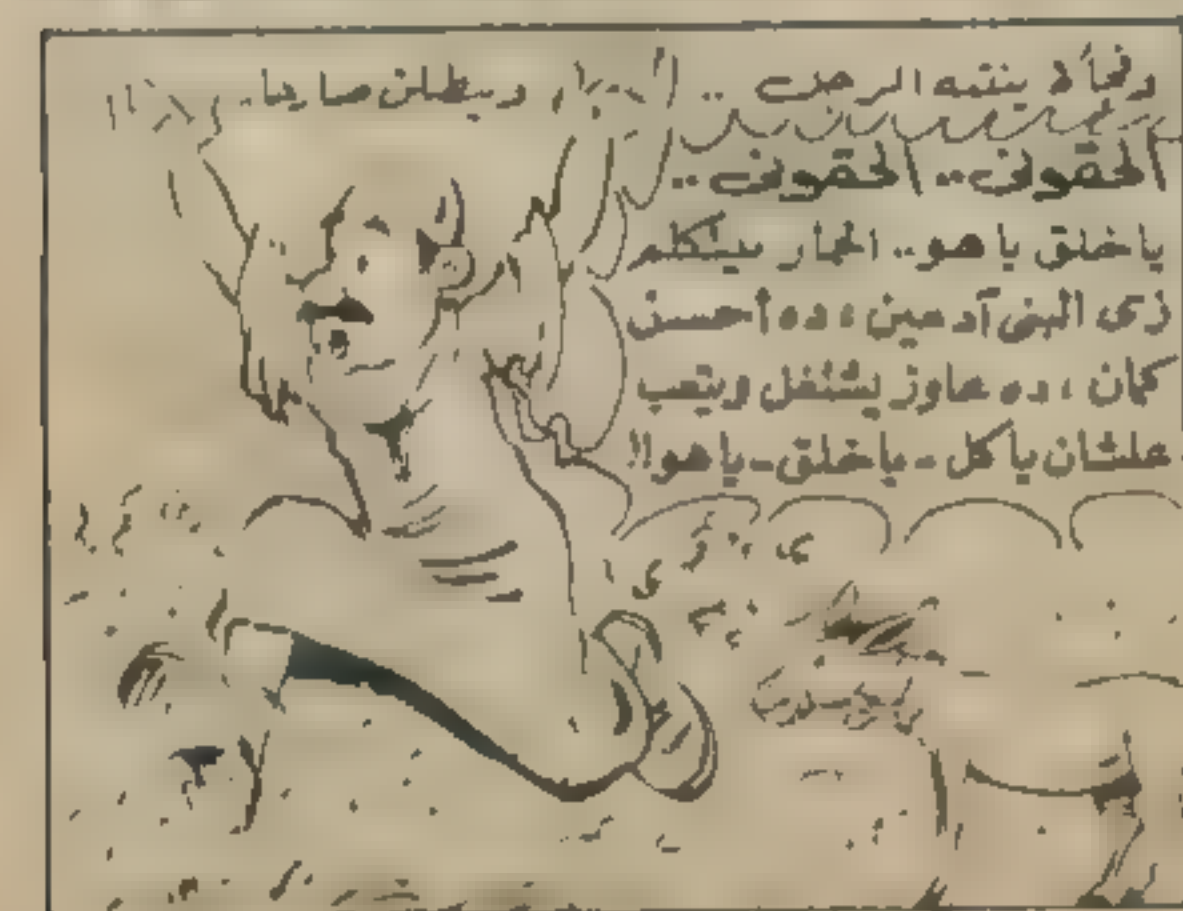 وفجأة ينتبه الرجل .. وينطلق صارخا..
الحقونى.. الحقونى..
ياخلق ياهو.. الحمار بيتكلم
زى البنى آدمين ، ده أحسن
كمان ، ده عاوز يشتغل ويتعب
علشان ياكل - ياخلق - ياهو!!